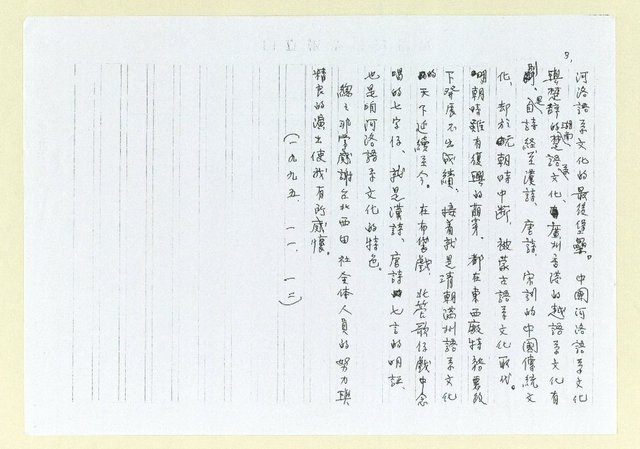 河洛語系文化的最後堡壘。中國河洛語系文化
與楚辭的楚語文化、廣州香港的越語系文化有
別、自詩經至漢詩、唐詩、宋詞的中國傳統文
化,却於元朝時中斷,被蒙古語系文化取代。
明朝時雖有復興的萌芽,都在東西廠特務
下發展不出成績,接着就是清朝滿州語系文化
的天下延續至今。在布袋戲、北管、歌仔戲中念
唱的七字仔,就是漢詩、唐詩七言的明証、
也是咱河洛語系文化的特色。
總之非常感謝台北西田社全体人員的努力與
精良的演出使我有所感懷。
(一九九五.一一.一二)